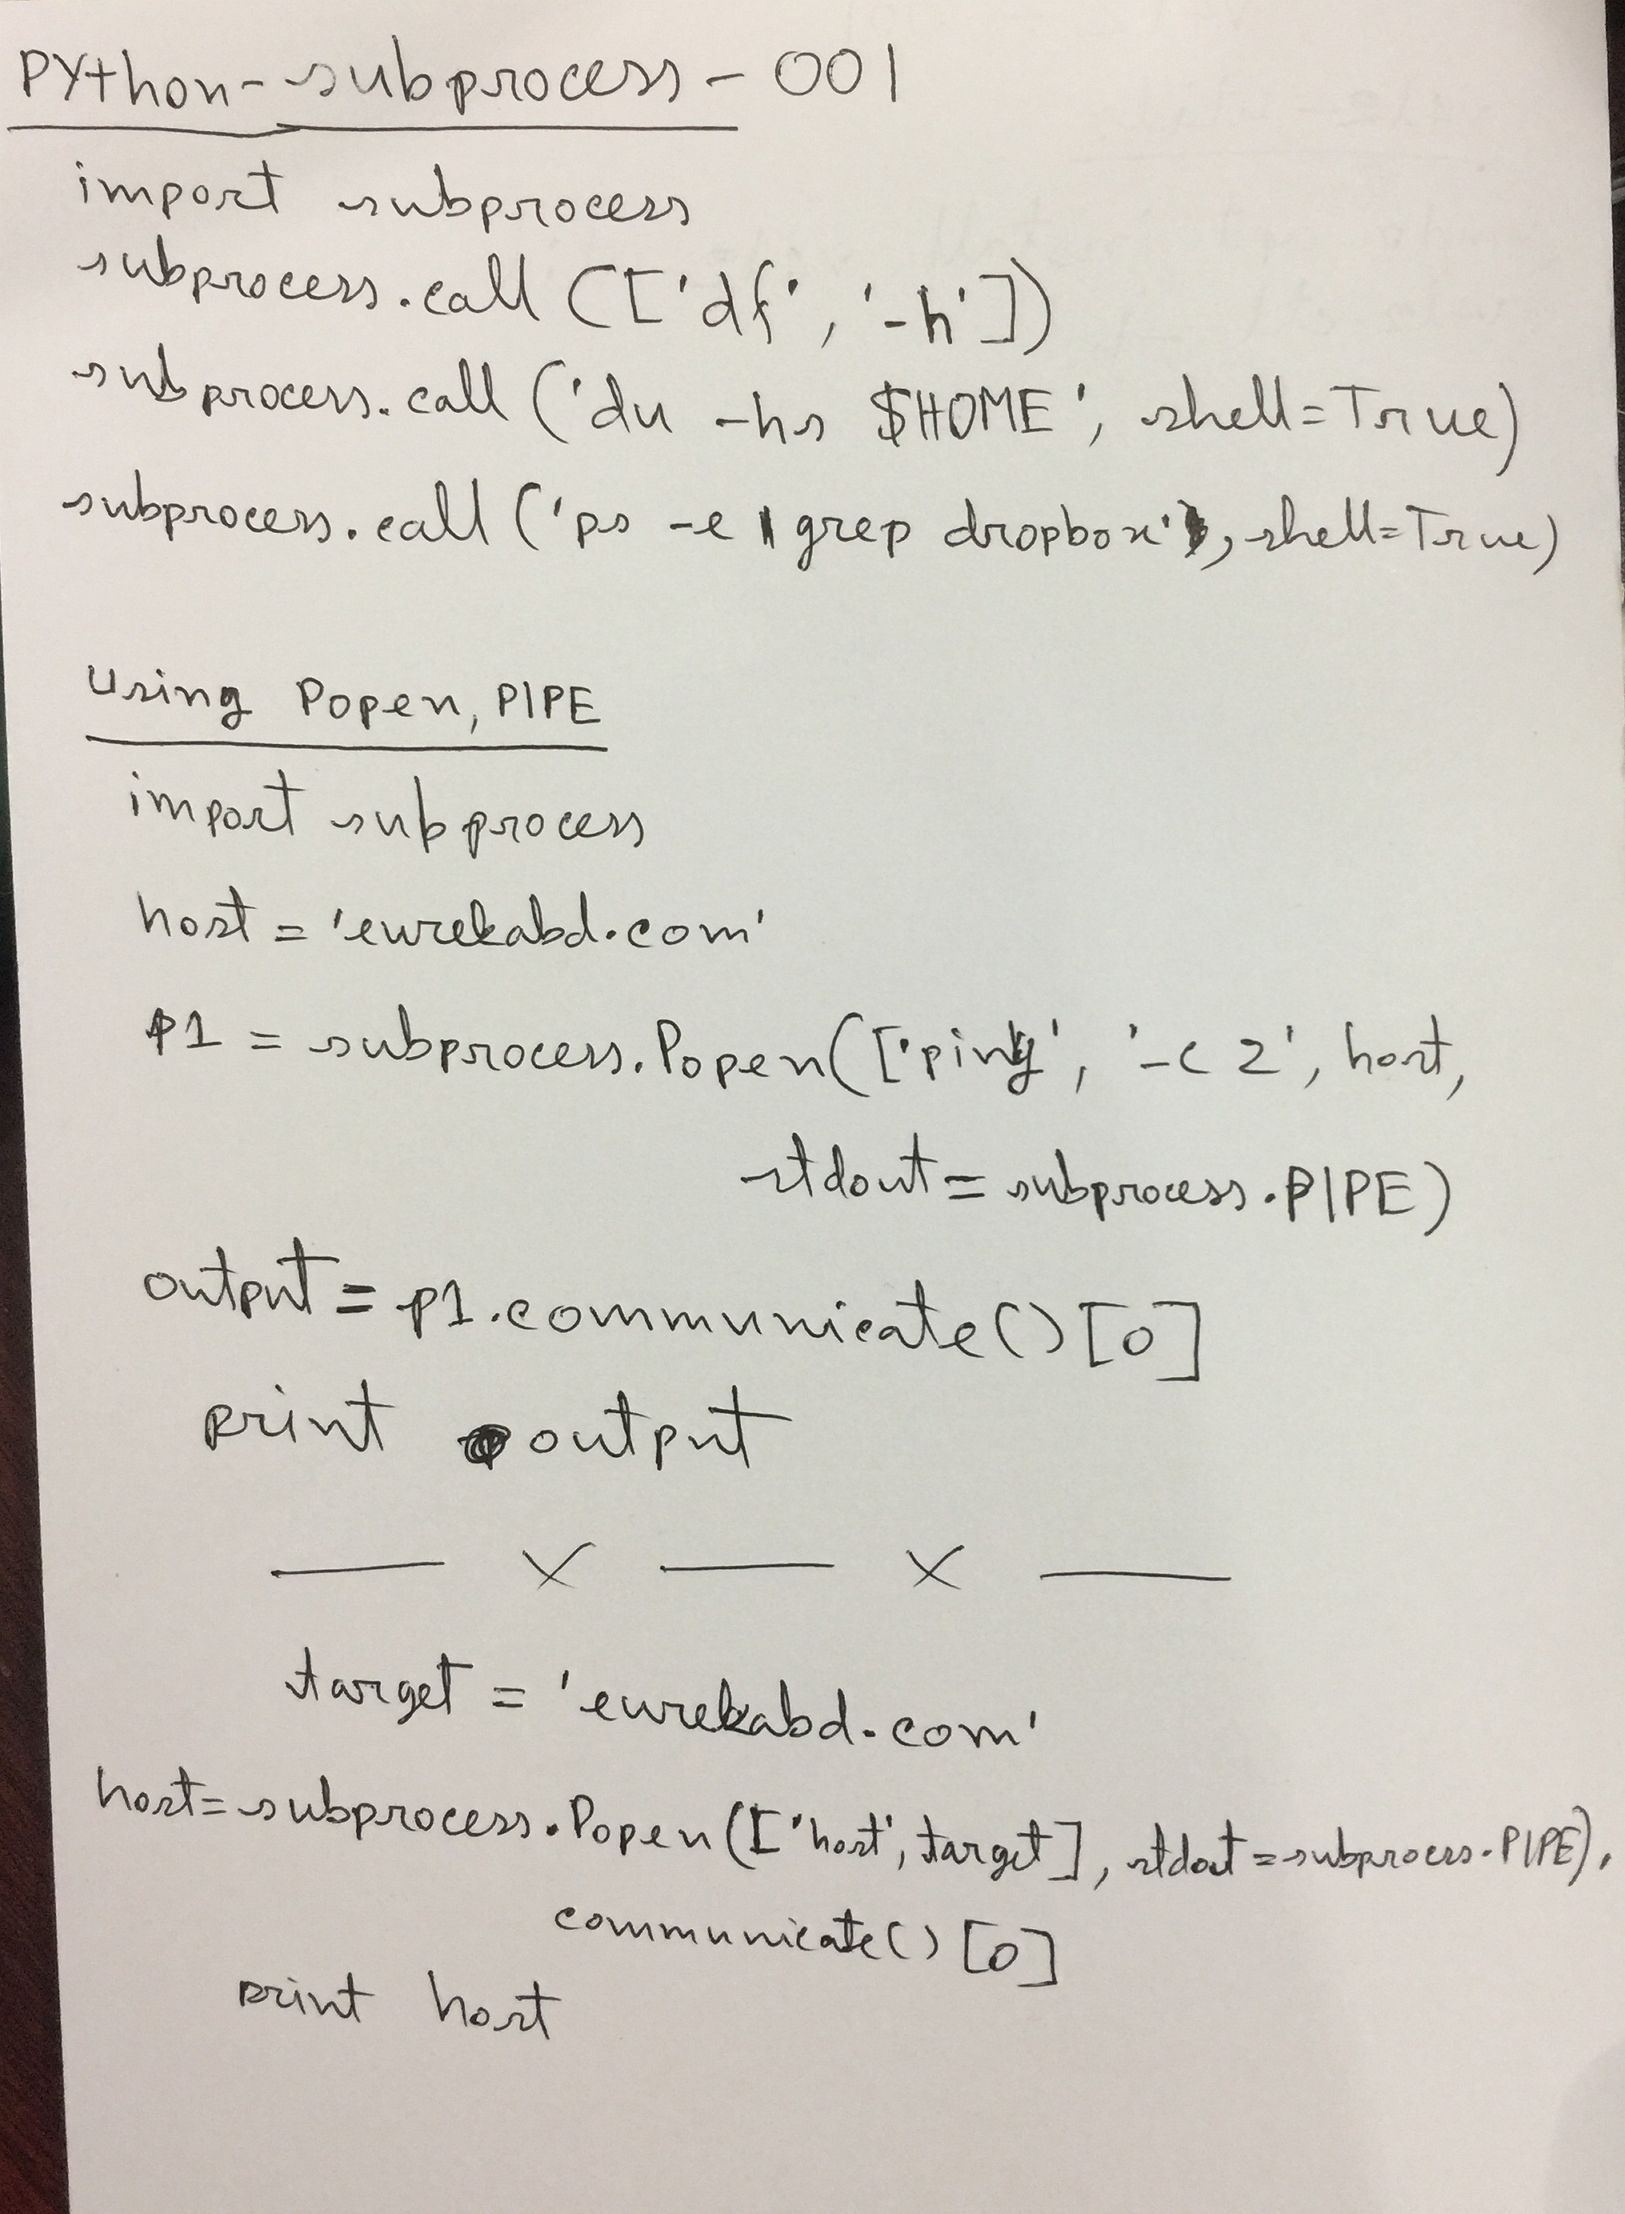 Python-subprocess-001
import subprocess
subprocess.call(['df', '-h'])
subprocess.call('du -hs $HOME', shell=True)
subprocess.call('ps -e | grep dropbox', shell=True)
Using Popen, PIPE
import subprocess
host = 'eurekabd.com'
p1 = subprocess.Popen(['ping', '-c 2', host,
stdout = subprocess.PIPE)
output = p1.communicate()[0]
print output
— x — x —
target = 'eurekabd.com'
host=subprocess.Popen(['host', target], stdout=subprocess.PIPE).
communicate()[0]
print host